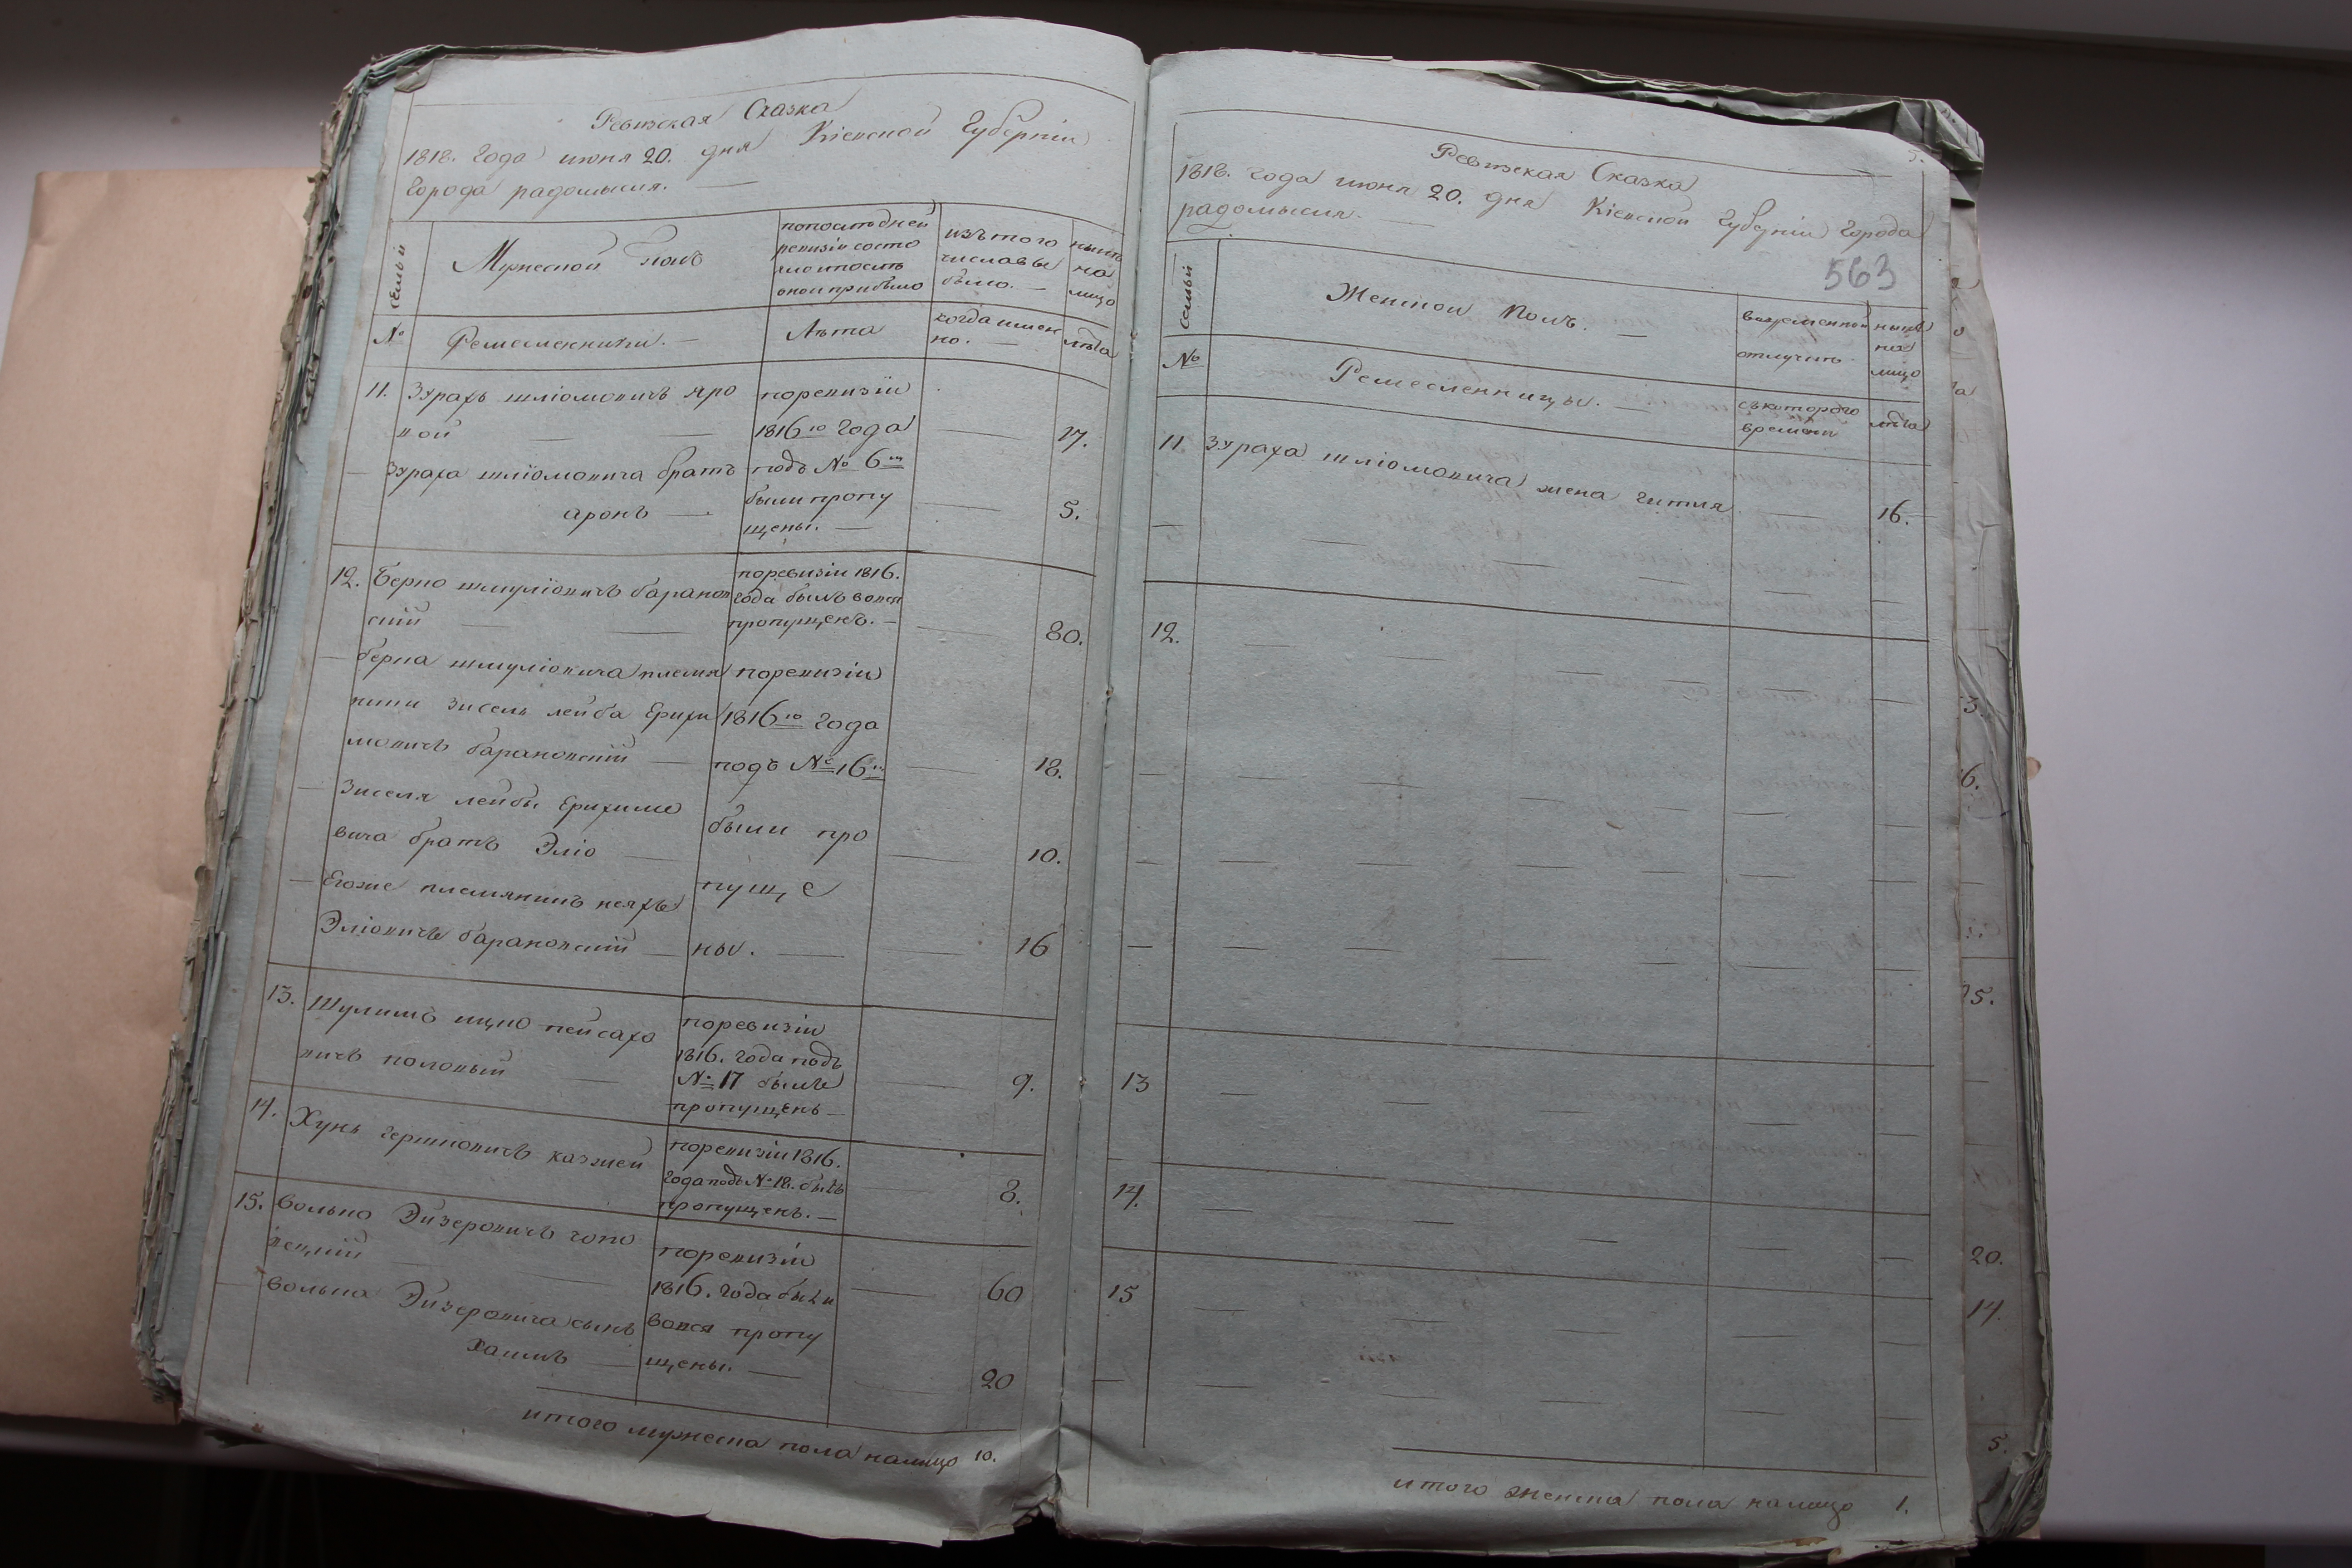 Ревизская Сказка
1818. года июня 20. дня Кіевской Губерніи
Города радомысля. —
семьи
Мужеской полъ
попоследней
ревизіи состо
яло ипосле
оной прибыло
изътого
числа вы
было. —
ныне
на
лицо
№
Ремесленники. —
Лѣта
когда имен
но. —
лѣта
11. Зурахъ шліомовичъ яро
вой — —
поревизіи
1816го года
17.
— Зураха шліомовича братъ
аронъ —
подъ № 6м
были пропу
щены. —
5.
12. Берко шмуліовичъ баранов
скій — —
поревизіи 1816.
года былъ вовся
пропущенъ. —
80.
— берка шмуліовича племя
никъ зисель лейба Ерухи
мовичъ барановскій —
поревизіи
1816го года
подъ № 16м
18.
— Зиселя лейбы Ерухимо
вича братъ Эліо —
были про
10.
— Егоже племянникъ
Эліовичъ барановскій —
пуще
ны. —
16
13. Шулимъ ицко пейсахо
вичъ половый —
поревизіи
1816. года подъ
№ 17 былъ
пропущенъ —
9.
14. Хунъ гершковичъ
поревизіи 1816.
года подъ № 18. былъ
пропущенъ. —
8.
15. Волько Эйзеровичъ чопо
вецкій
поревизіи
1816. года были
60
— Волька Эйзеровича сынъ
Хаимъ —
вовся пропу
щены. —
20
итого мужеска пола налицо 10.
5.
Ревизская Сказка
1818. года июня 20. дня Кіевской Губерніи Города
радомысля. —
563
семьи
Женской полъ. —
вовременной
отлучке
ныне
на
лицо
№
Ремесленницы. —
съкоторого
времени
лѣта
11 Зураха шліомовича жена гитля — 16.
12.
13
14.
15
итого женска пола налицо 1.